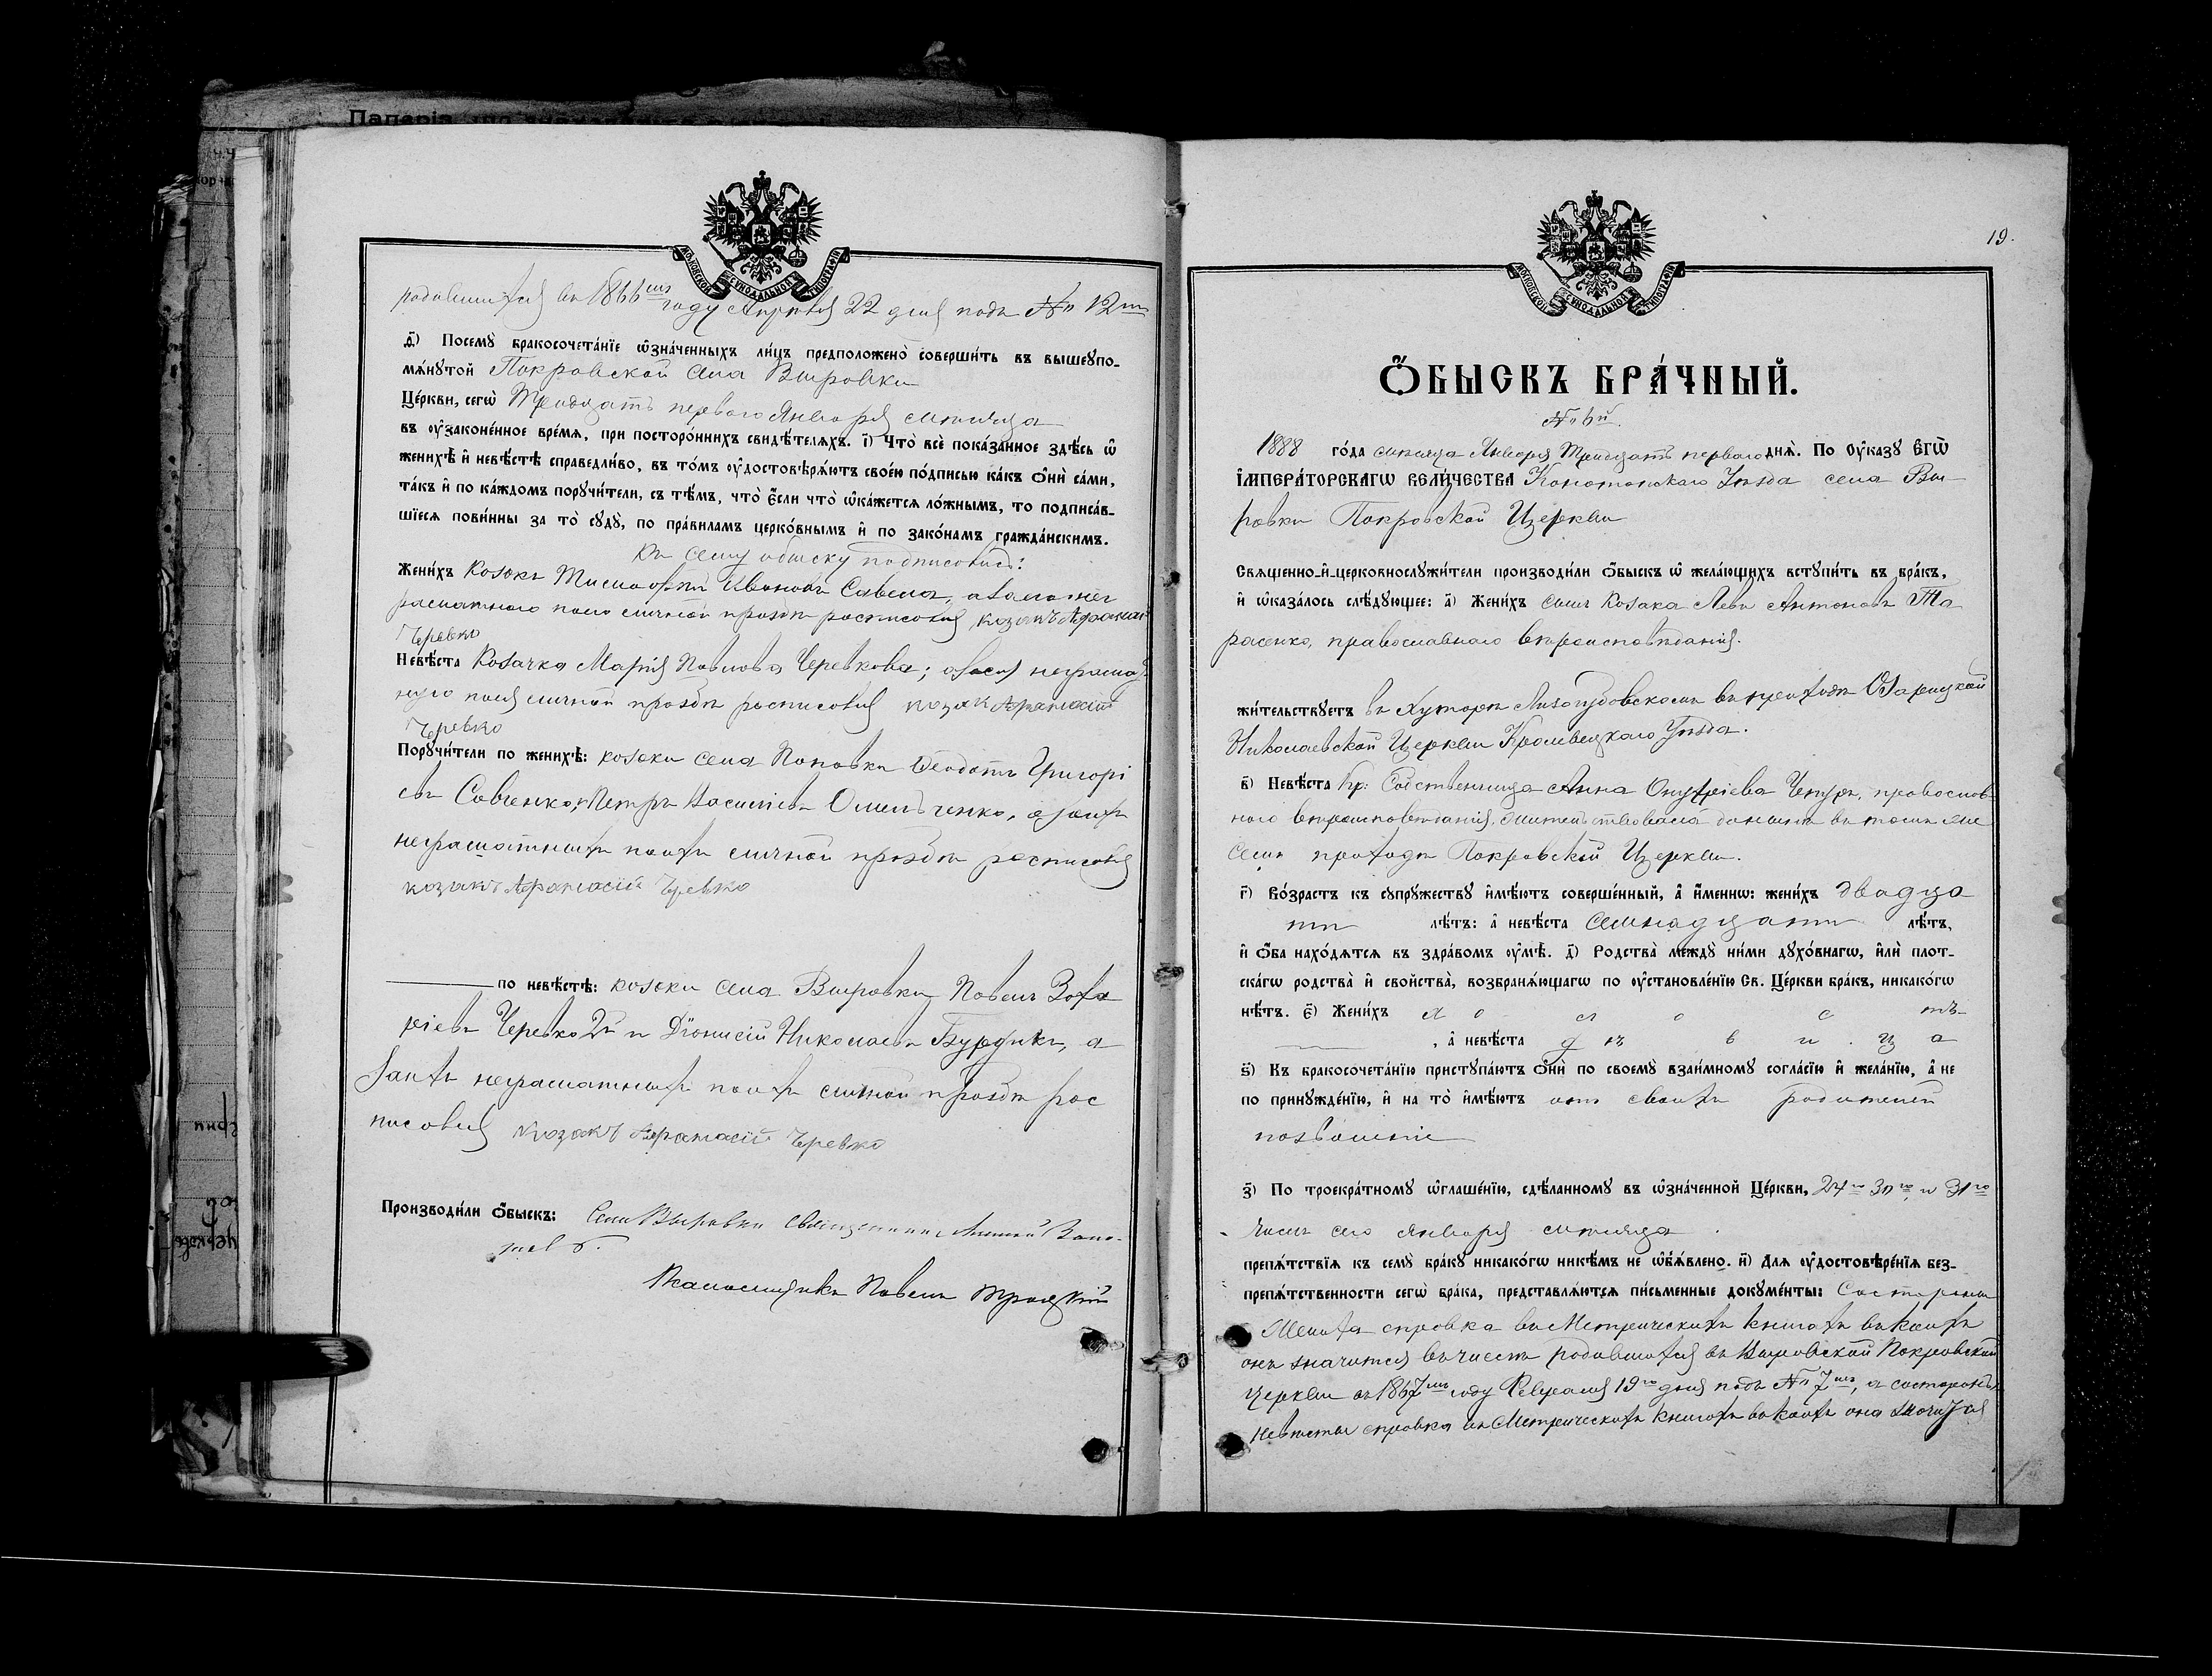 родившихся въ 1866мъ году Апрѣля 22 дня подъ № 12мъ
д҃) Посемꙋ̀ бракосочета́нїе ѡ҆зна́ченныхъ ли́цъ предположено̀ соверши́ть въ вышеꙋпо-
мѧ́нꙋтой Покровской села Вировки
Це́ркви, сегѡ̀ Тридцать перваго Января мѣсяца
въ ᲂу҆зако́ненное вре́мѧ, при посторо́ннихъ свидѣ́телѧхъ. і҃) Что̀ всѐ пока́занное здѣ́сь ѡ҆
женихѣ̀ и҆ невѣ́стѣ справедли́во, въ то́мъ ᲂу҆достовѣрѧ́ютъ свое́ю по́дписью ка́къ ѻ҆нѝ са́ми,
та́къ и҆ по ка́ждомъ порꙋчи́тели, съ тѣ́мъ, что̀ є҆́сли что̀ ѡ҆ка́жется ло́жнымъ, то подписа́в-
шїеся пови́нны за то̀ сꙋдꙋ̀, по пра́виламъ церко́внымъ и҆ по зако́намъ гражда́нскимъ.
къ сему обыску подписались:
Жени́хъ Козакъ Тимофей Ивановъ Савела, а за него не
грамотнаго по его личной прозбѣ росписался козакъ Афанасій
Черевко
Невѣ́ста Козачка Марія Павлова Черевкова; а за сію неграмот
ную по ея личной прозбѣ росписался козак Афанасій
Черевко
Порꙋчи́тели по женихѣ̀: козаки села Поповки Ѳеодотъ Григорі
евъ Савченко, и Петръ Василіевъ Омельченко, а за ихъ
неграмотныхъ по ихъ личной прозбѣ росписался
козакъ Афанасій Черевко
по невѣ́стѣ: козаки села Вировки Павелъ Заха
ріевъ Черевко 2й и Діонисій Николаевъ Бурдикъ, а
за ихъ неграмотныхъ по ихъ личной прозбѣ рос
писался козакъ Афанасій Черевко
Производи́ли ѻ҆́быскъ: Села Вировки священникъ
Псаломщикъ Павелъ Троцкій
19.
Ѻ҆́БЫСКЪ БРА́ЧНЫЙ.
№ 6й.
1888 го́да мѣсяца Января Тридцать перваго днѧ̀. По Оу҆ка́зꙋ Є҆ГѠ̀
І҆МПЕРА́ТОРСКАГѠ ВЕЛИ́ЧЕСТВА Конотопскаго Уѣзда села Ви-
ровки Покровской Церкви
Свѧщенно-и҆-церковнослꙋжи́тели производи́ли ѻ҆́быскъ ѡ҆ жела́ющихъ встꙋпи́ть въ бра́къ,
и҆ ѡ҆каза́лось слѣ́дꙋющее: а҃) Жени́хъ сынъ Козака Левъ Антоновъ Та
расенко, православнаго вѣроисповѣданія.
жи́тельствꙋетъ въ Хуторѣ Лизогубовскомъ въ приходѣ Озарицкой
Николаевской Церкви Кролевецкаго Уѣзда.
в҃) Невѣ́ста Кр: Собственница Анна Онуфріева Чепура, православ
наго вѣроисповѣданія. жительствовала доныне въ томъ же
селѣ приходѣ Покровской Церкви.
г҃) Во́зрастъ къ сꙋпрꙋ́жествꙋ и҆мѣ́ютъ соверше́нный, а҆ и҆́меннѡ: жени́хъ двадца
ти лѣ́тъ: а҆ невѣ́ста семнадцати лѣ́тъ,
и҆ ѻ҆́ба нахо́дѧтся въ здра́вомъ ᲂу҆мѣ̀. д҃) Родства̀ междꙋ̀ ни́ми дꙋхо́внагѡ, и҆лѝ плот-
ска́гѡ родства̀ и҆ сво́йства̀, возбранѧ́ющагѡ по ᲂу҆становле́нїю Св. Це́ркви бра́къ, никако́гѡ
нѣ́тъ. є҃) Жени́хъ холостъ
, а҆ невѣ́ста дѣвица
ѕ҃) Къ бракосочета́нїю пристꙋпа́ютъ ѻ҆нѝ по своемꙋ̀ взаи́мномꙋ согла́сїю и҆ жела́нїю, а҆ не
по принꙋжде́нїю, и҆ на то̀ и҆мѣ́ютъ отъ своихъ родителей
позволеніе
з҃) По троекра́тномꙋ ѡ҆глаше́нїю, сдѣ́ланномꙋ въ ѡ҆зна́ченной Це́ркви, 24го 30го и 31го
числъ сего Января мѣсяца
препѧ́тствїя къ семꙋ̀ бра́кꙋ никако́гѡ никѣ́мъ не ѡ҆б̾ѧ́влено. и҃) Для ᲂу҆достовѣре́нїя без-
препѧ́тственности сегѡ̀ бра́ка, представлѧ́ются пи́сьменные докꙋме́нты: Со стороны
Жениха справка въ Метрическихъ книгахъ въ коихъ
онъ значится въ числѣ родившихся въ Вировской Покровской
Церкви въ 1867мъ году Февраля 19го дня подъ № 7мъ, а со стороны
невѣсты справка въ Метрическихъ книгахъ въ коихъ она значится